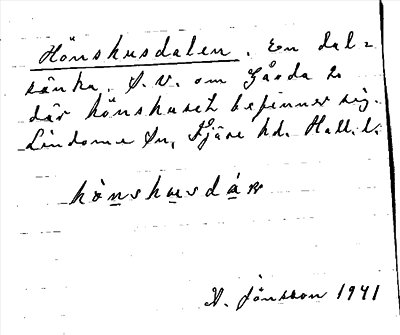 Hönshusdalen. En dal=
sänka. S.v. om Gårda 2
där hönshuset befinner sig.
Lindome Sn, Fjäre hd. Hall. l.
hö̀nshusdáƞ
V. Jönsson 1941